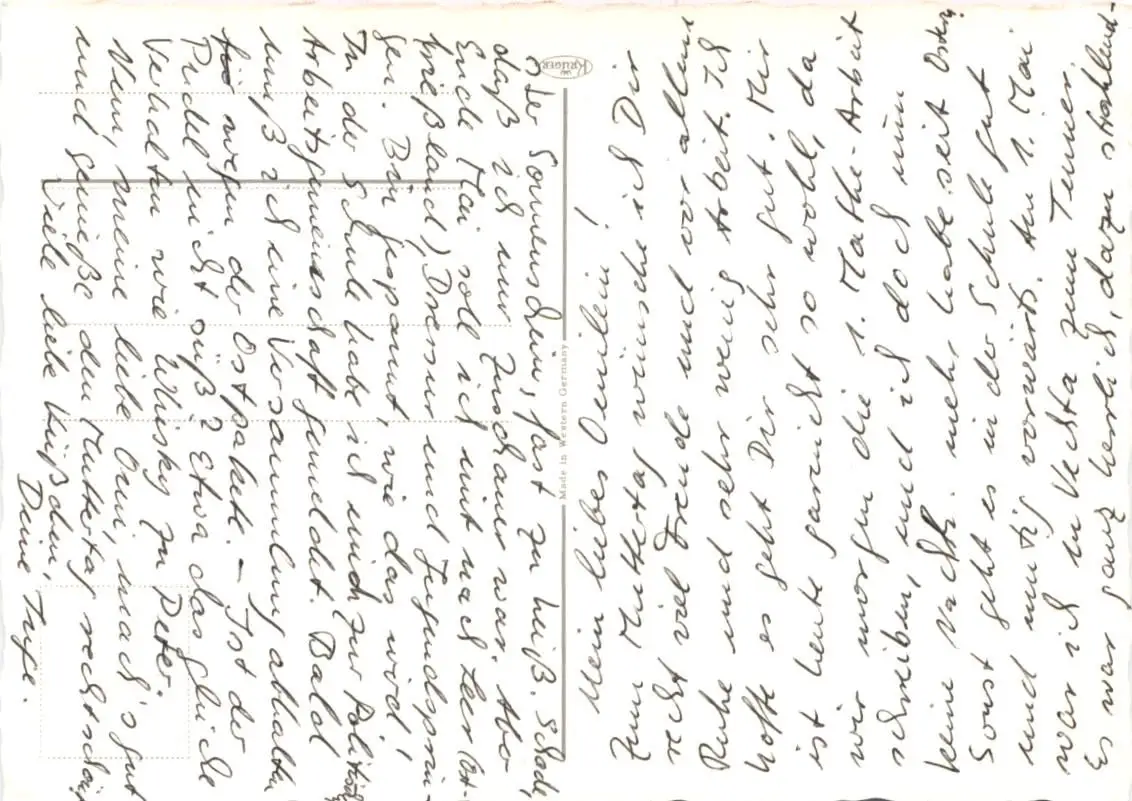 Mein liebes Omilein!
Zum Muttertag wünsche ich Dir
recht viel Freude und vor allem
Ruhe und sehr wenig Arbeit. Ich
hoffe es geht Dir sehr gut. Mir
ist heute garnicht so wohl, da
wir morgen die 1. Mathe-Arbeit
schreiben, und ich doch nun
keine Nachh. mehr habe seit Ostern.
Sonst geht es in der Schule gut
und mutig vorwärts. Am 1. Mai
war ich in Vechta zum Turnier.
Es war ganz herrlich, dazu strahlend-
der Sonnenschein, fast zu heiß. Schade,
daß ich nur Zuschauer war. Aber
Ende Mai soll ich mit nach Leer (Ost-
frießland), Dressur und Jugendsprin-
gen. Bin gespannt, wie das wird!
In der Schule habe ich mich zur Politisch
Arbeitsgemeinschaft gemeldet. Bald
muß ich eine Versammlung abhalten
wegen der Ostpakete. – Ist der
Pudel nicht süß? Etwa das gleiche
Verhalten wie Whisky zu Peter.
Nun, meine liebe Omi, mach's gut
und genieße den Muttertag recht schön.
Viele liebe Küßchen,
Deine
KRÜGER
Made in Western Germany